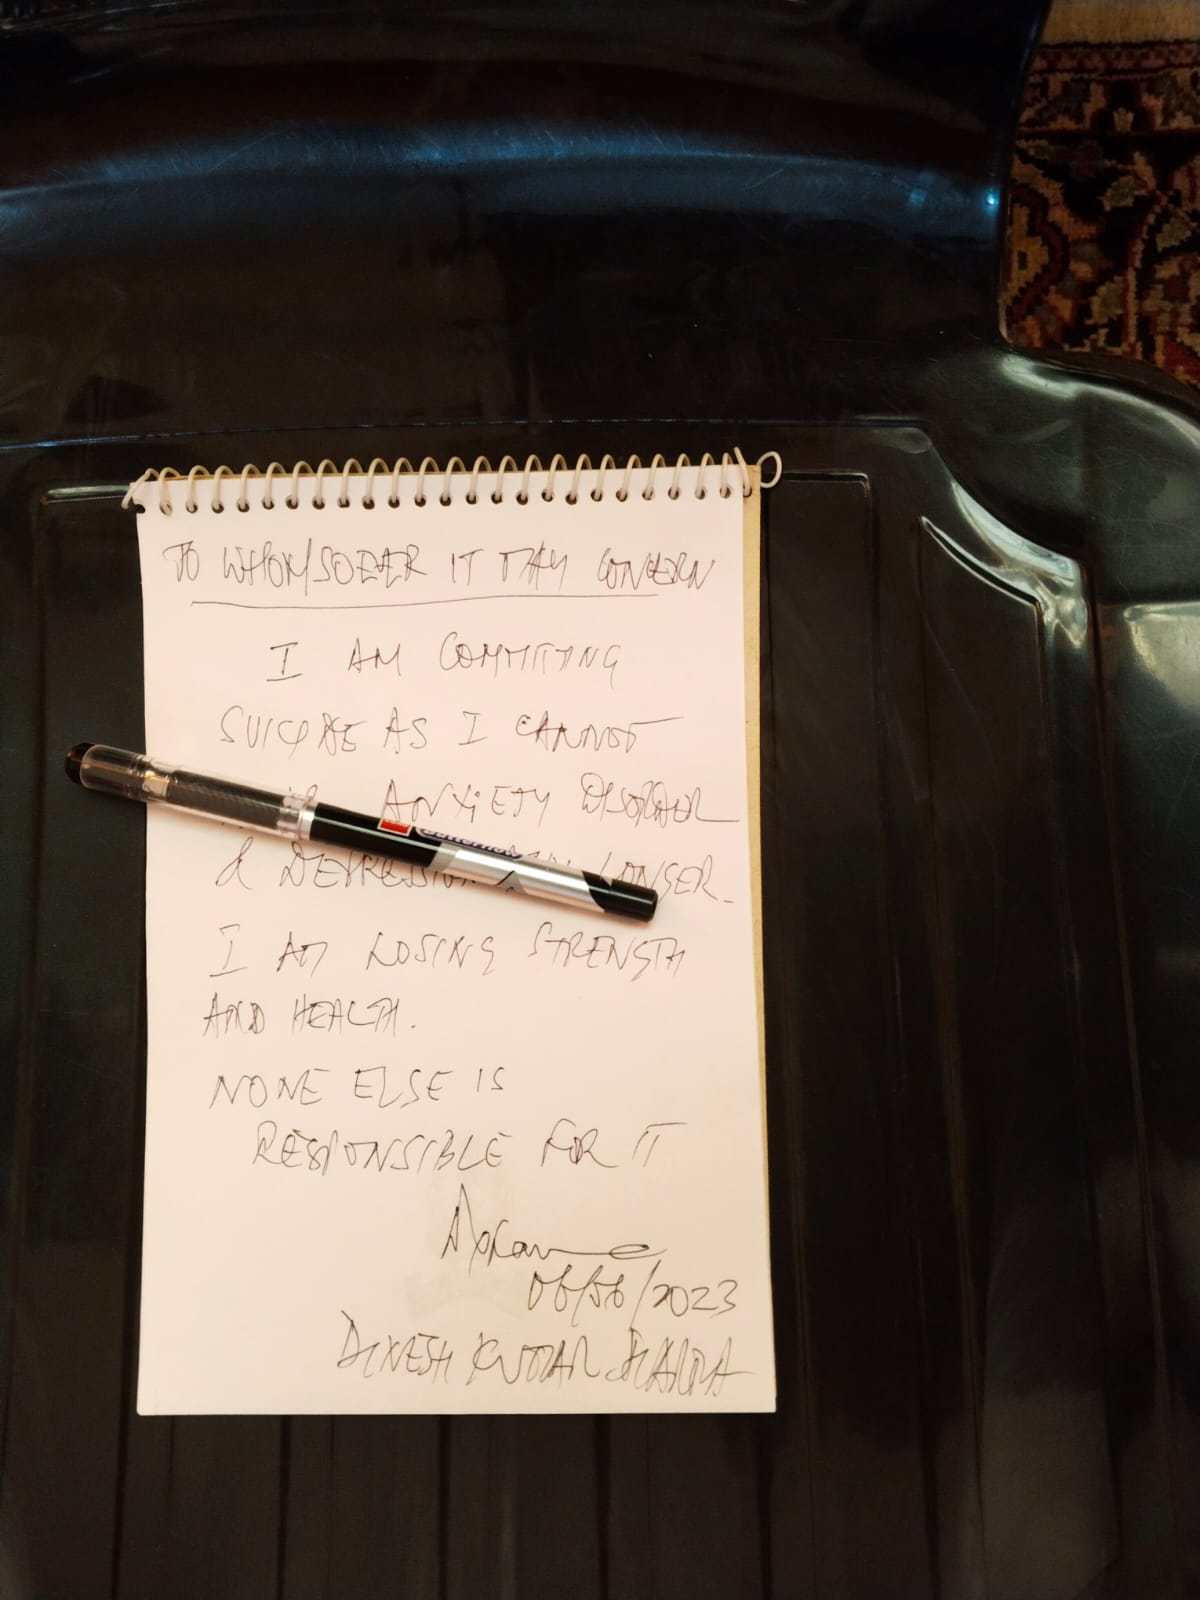 TO WHOM/SOEVER IT MAY CONCERN
I AM COMMITTING
SUICIDE AS I CANNOT
ANXIETY DISORDER
& DEPRESSION LONGER.
I AM LOSING STRENGTH
AND HEALTH.
NONE ELSE IS
RESPONSIBLE FOR IT
06/06/2023
DINESH KUMAR SHARMA
Butterflow